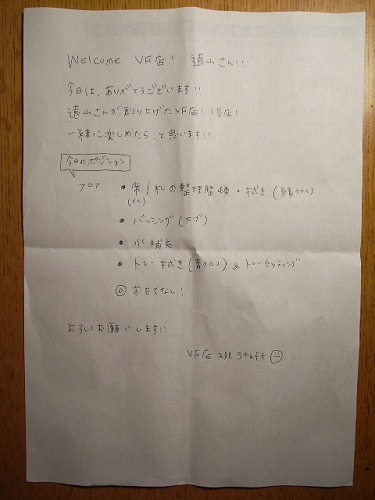 Welcome VF店! 遠山さん!!
今日は、ありがとうございます!!
遠山さんが創り上げたVF店! 1号店!
一緒に楽しめたら、と思います!!
今日のポジション
フロア
・席/机の整理整頓・拭き(緑クロス)
(イス)
・バッシング(下げ)
・水補充
・トレー拭き(青クロス) & トレーセッティング
◎ おもてなし!
よろしくお願いします!!
VF店 all staff